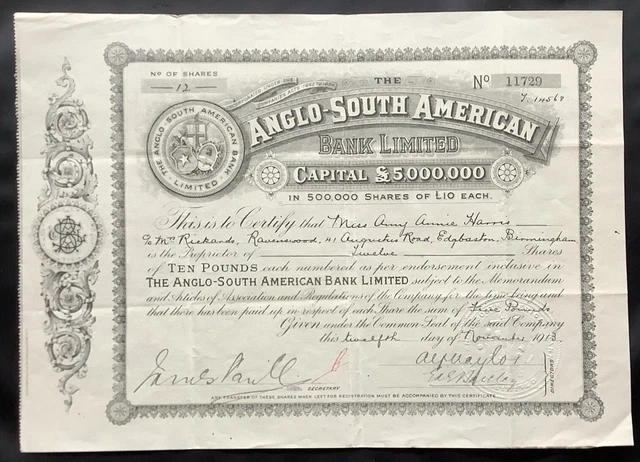 No OF SHARES
12
INCORPORATED UNDER THE
THE
No 11729
ANGLO-SOUTH AMERICAN
BANK LIMITED
THE ANGLO-SOUTH AMERICAN BANK LIMITED
CAPITAL £5,000,000
IN 500,000 SHARES OF £10 EACH.
This is to Certify that Miss Amy Annie Harris
c/o Mrs Rickards, Ravenswood, 41 Augustus Road, Edgbaston, Birmingham
is the Proprietor of Twelve Shares
of TEN POUNDS each numbered as per endorsement inclusive in
THE ANGLO-SOUTH AMERICAN BANK LIMITED subject to the Memorandum
and Articles of Association and Regulations of the Company for the time being and
that there has been paid up in respect of each Share the sum of Five Pounds
Given under the Common Seal of the said Company
this twelfth day of November 1913.
SECRETARY
DIRECTORS
ANY TRANSFER OF THESE SHARES WHEN LEFT FOR REGISTRATION MUST BE ACCOMPANIED BY THIS CERTIFICATE.